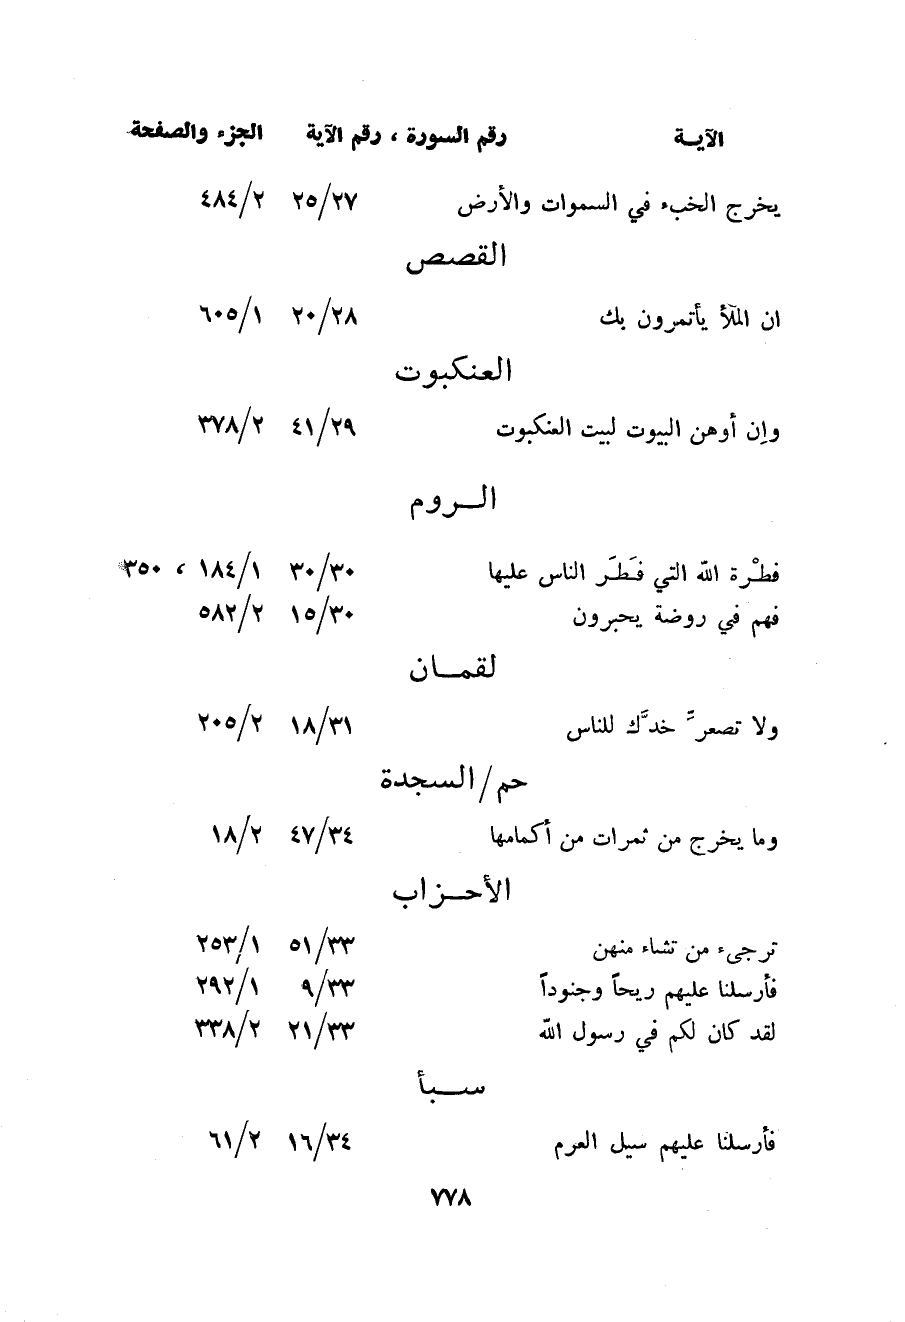 الآيــة رقم السورة ، رقم الآية الجزء والصفحة
يخرج الخبء في السموات والأرض ٢٥/٢٧ ٤٨٤/٢
القصص
ان الملأ يأتمرون بك ٢٠/٢٨ ٦٠٥/١
العنكبوت
وإن أوهن البيوت لبيت العنكبوت ٤١/٢٩ ٣٧٨/٢
الــروم
فطْرة الله التي فَطَر الناس عليها ٣٠/٣٠ ١٨٤/١ ، ٣٥٠
فهم في روضة يحبرون ١٥/٣٠ ٥٨٢/٢
لقمــان
ولا تصعرِّ خدَّك للناس ١٨/٣١ ٢٠٥/٢
حم/السجدة
وما يخرج من ثمرات من أكمامها ٤٧/٣٤ ١٨/٢
الأحــزاب
ترجىء من تشاء منهن ٥١/٣٣ ٢٥٣/١
فأرسلنا عليهم ريحاً وجنوداً ٩/٣٣ ٢٩٢/١
لقد كان لكم في رسول الله ٢١/٣٣ ٣٣٨/٢
ســبأ
فأرسلنا عليهم سيل العرم ١٦/٣٤ ٦١/٢
٧٧٨